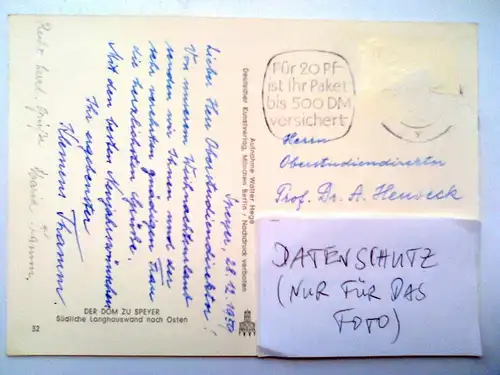 Speyer, 28.12.1970
Lieber Herr Oberstudiendirektor!
Von unserem Weihnachtsurlaub
senden wir Ihnen und der
sehr verehrten gnädigen Frau
die herzlichsten Grüße.
Mit den besten Neujahrswünschen
Ihr ergebenster
Klemens Thamm
Grüße
Aufnahme Walter Hege
Deutscher Kunstverlag, München Berlin / Nachdruck verboten
DER DOM ZU SPEYER
Südliche Langhauswand nach Osten
32
Für 20 Pf
ist Ihr Paket
bis 500 DM
versichert
Herrn
Oberstudiendirektor
Prof. Dr. A.
DATENSCHUTZ
(NUR FÜR DAS
FOTO)